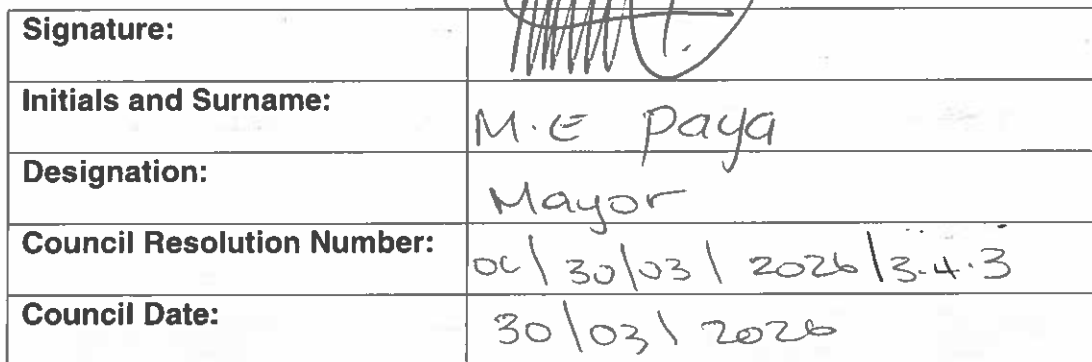 Signature:
Initials and Surname: M.E Paya
Designation: Mayor
Council Resolution Number: OC/30/03/2026/3.4.3
Council Date: 30/03/2026